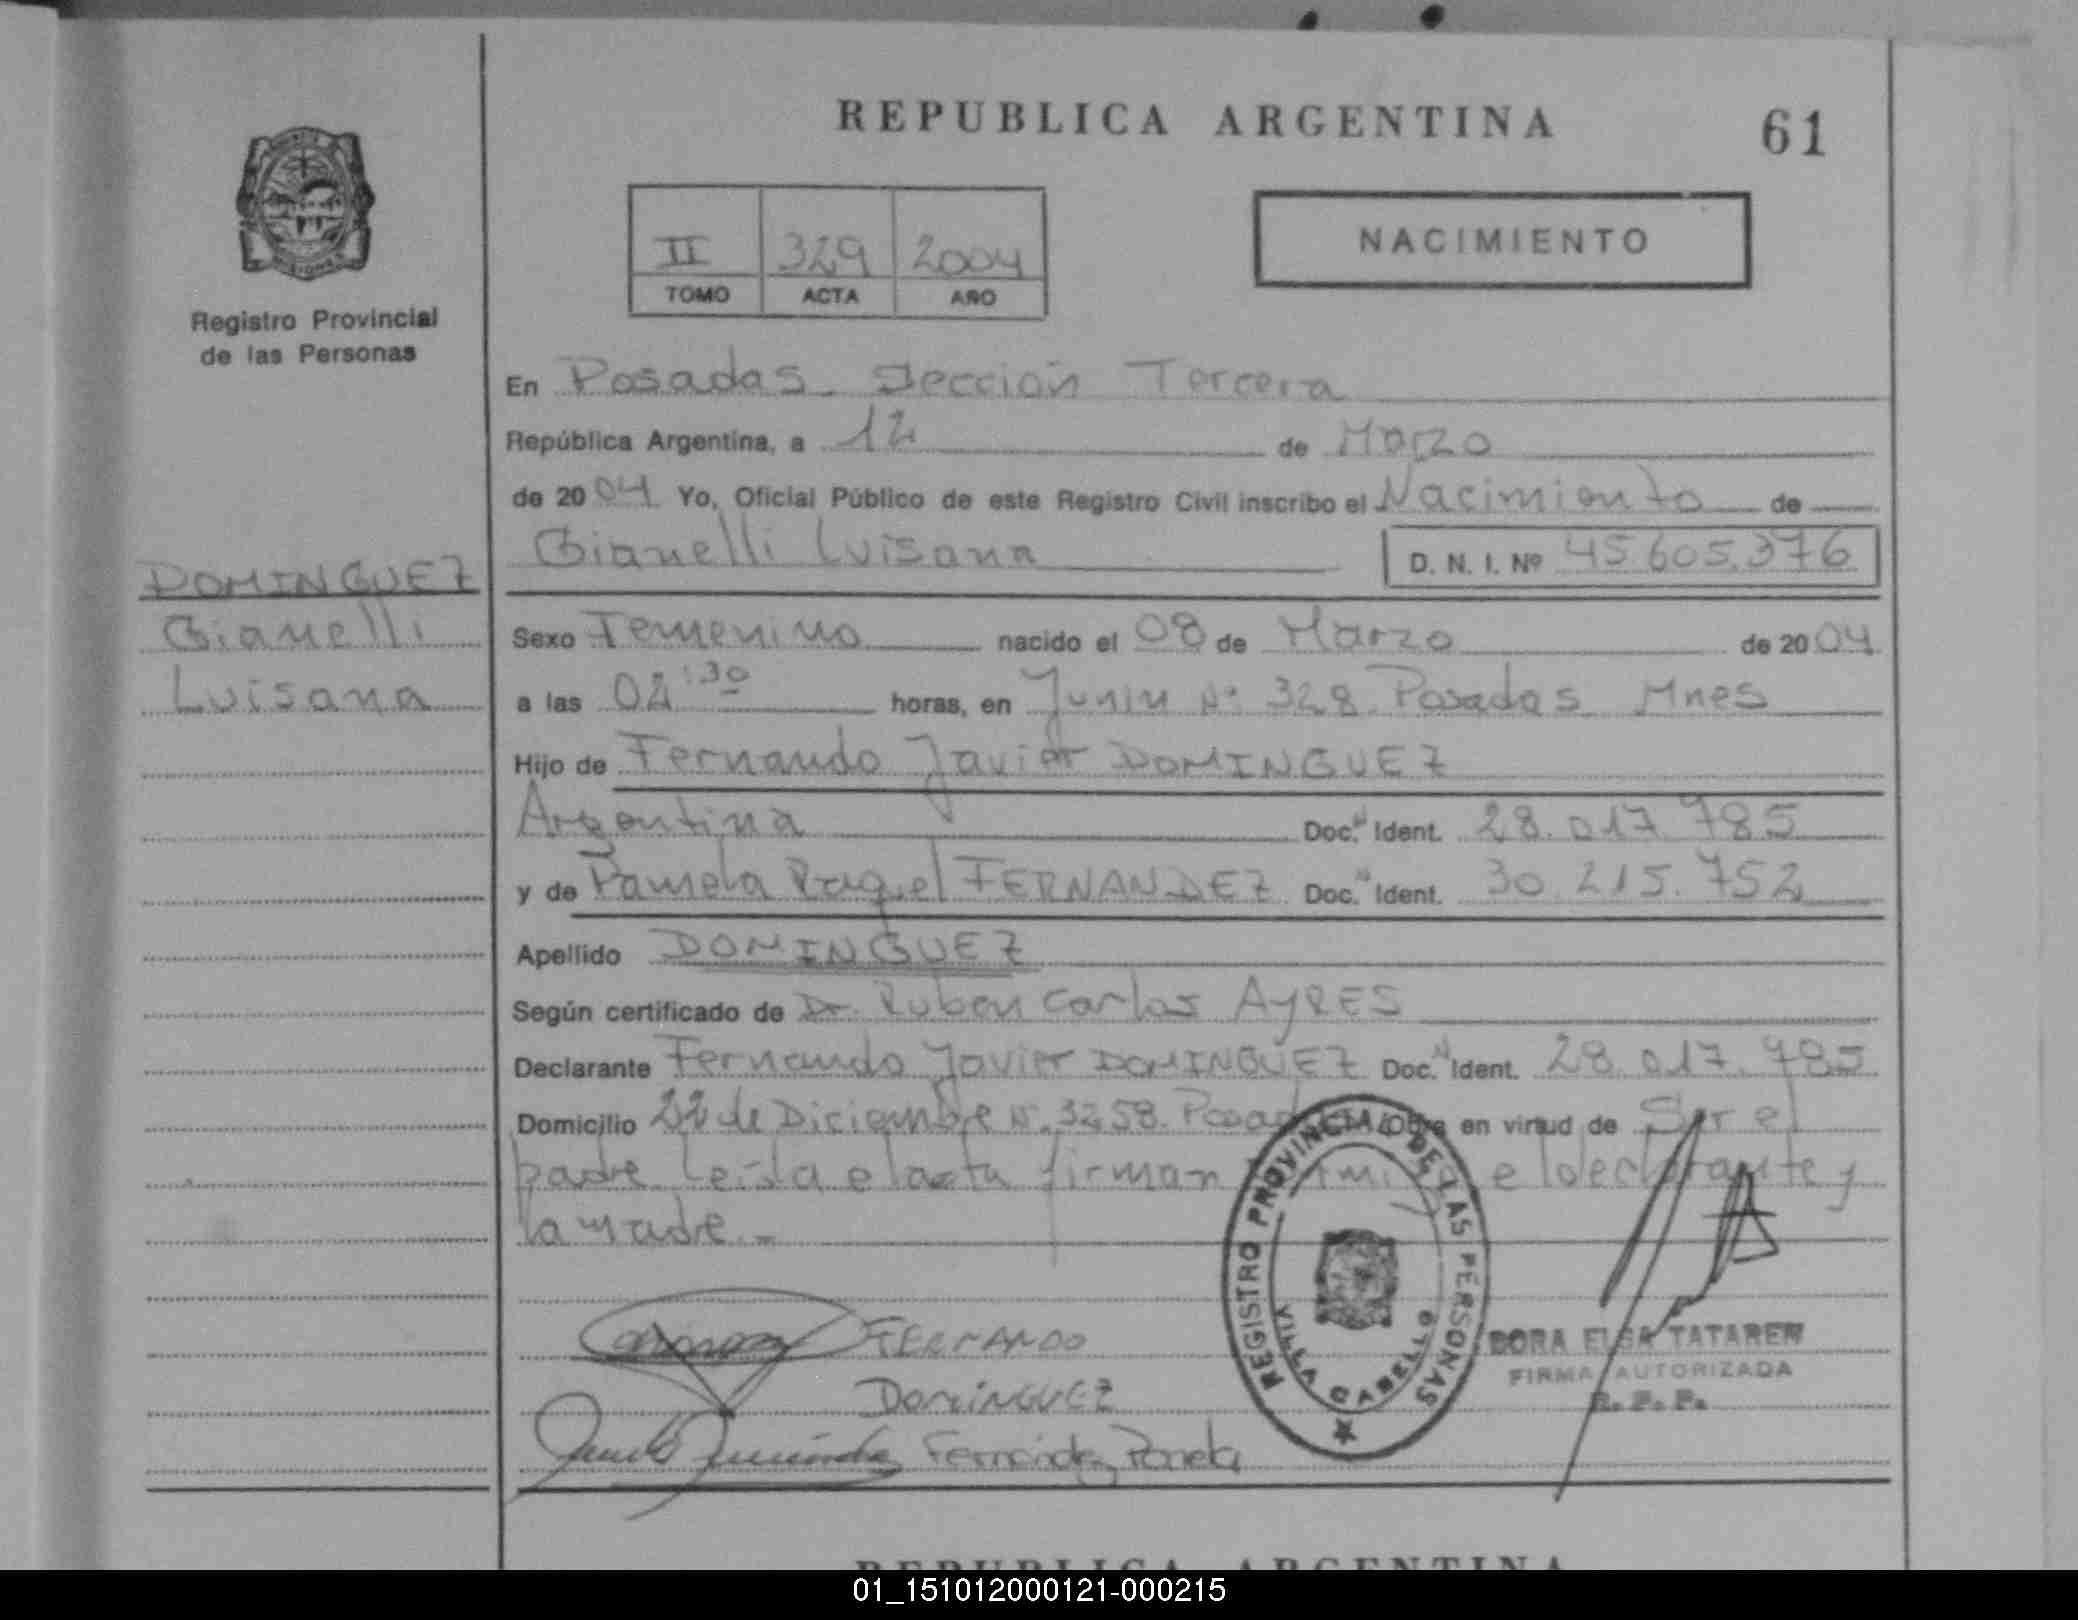 REPUBLICA ARGENTINA
61
II 329 2004
TOMO ACTA AÑO
NACIMIENTO
MISIONES
Registro Provincial
de las Personas
En Posadas Sección Tercera
República Argentina, a 12 de Marzo
de 2004 Yo, Oficial Público de este Registro Civil inscribo el Nacimiento de
Gianelli Luisana D. N. I. Nº 45.605.376
DOMINGUEZ
Gianelli
Luisana
Sexo Femenino nacido el 08 de Marzo de 2004
a las 02:30 horas, en Junin Nº 328. Posadas Mnes
Hijo de Fernando Javier DOMINGUEZ
Argentina Doc. Ident. 28.017.785
y de Pamela Raquel FERNANDEZ Doc. Ident. 30.215.752
Apellido DOMINGUEZ
Según certificado de Dr. Ruben Carlos AYRES
Declarante Fernando Javier DOMINGUEZ Doc. Ident. 28.017.785
Domicilio 22 de Diciembre Nº 3258. Posadas Obra en virtud de Ser el
padre. Leída el acta firman el declarante y
la madre.-
FERNANDO
DOMINGUEZ
Fernández Pamela
REGISTRO PROVINCIAL DE LAS PERSONAS
VILLA CABELLO
DORA ELSA TATAREN
FIRMA AUTORIZADA
R. P. P.
REPUBLICA ARGENTINA
01_151012000121-000215